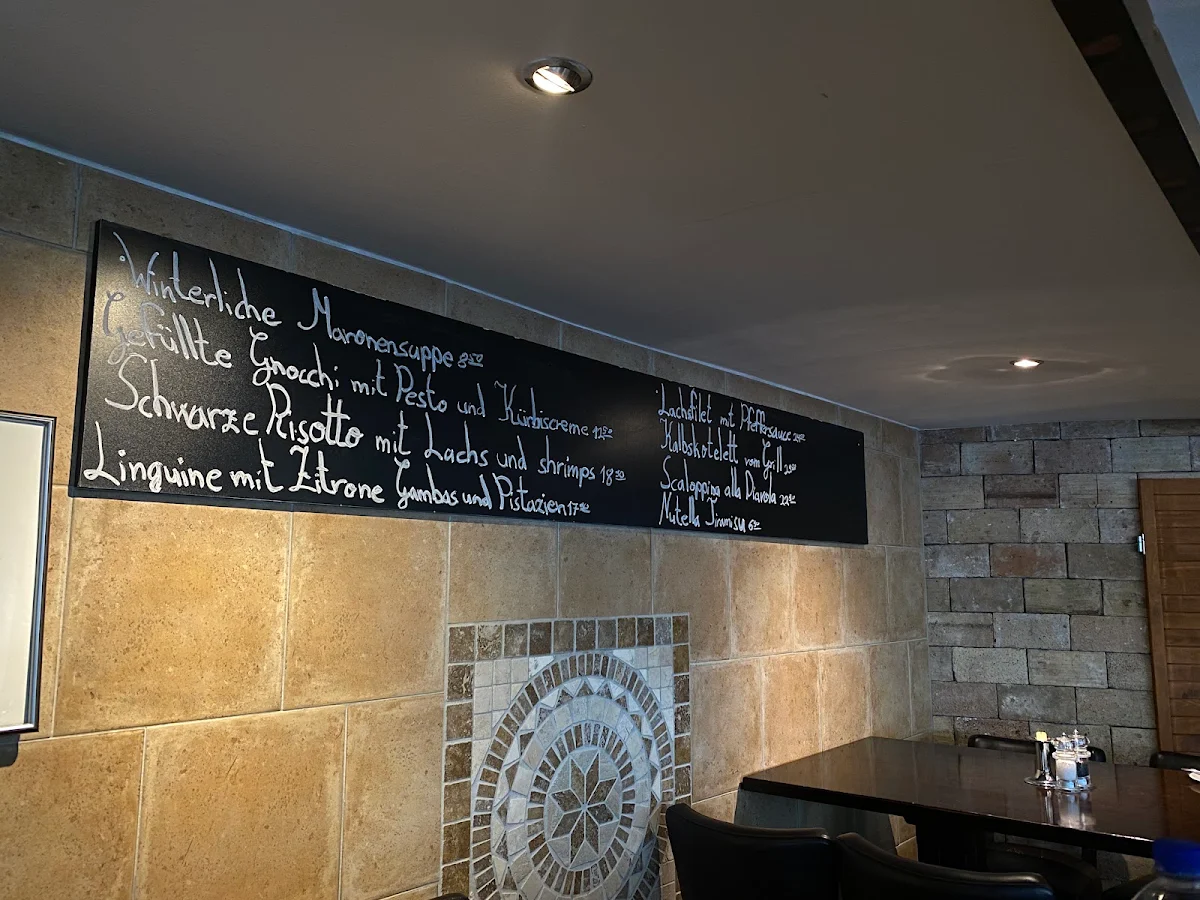 Winterliche Maronensuppe 8⁵⁰
Gefüllte Gnocchi mit Pesto und Kürbiscreme 12⁵⁰
Schwarze Risotto mit Lachs und shrimps 18⁵⁰
Linguine mit Zitrone Gambas und Pistazien 17⁵⁰
Lachsfilet mit Pfeffersauce
Kalbskotelett vom Grill
Scaloppina alla Diavola
Nutella Tiramisu